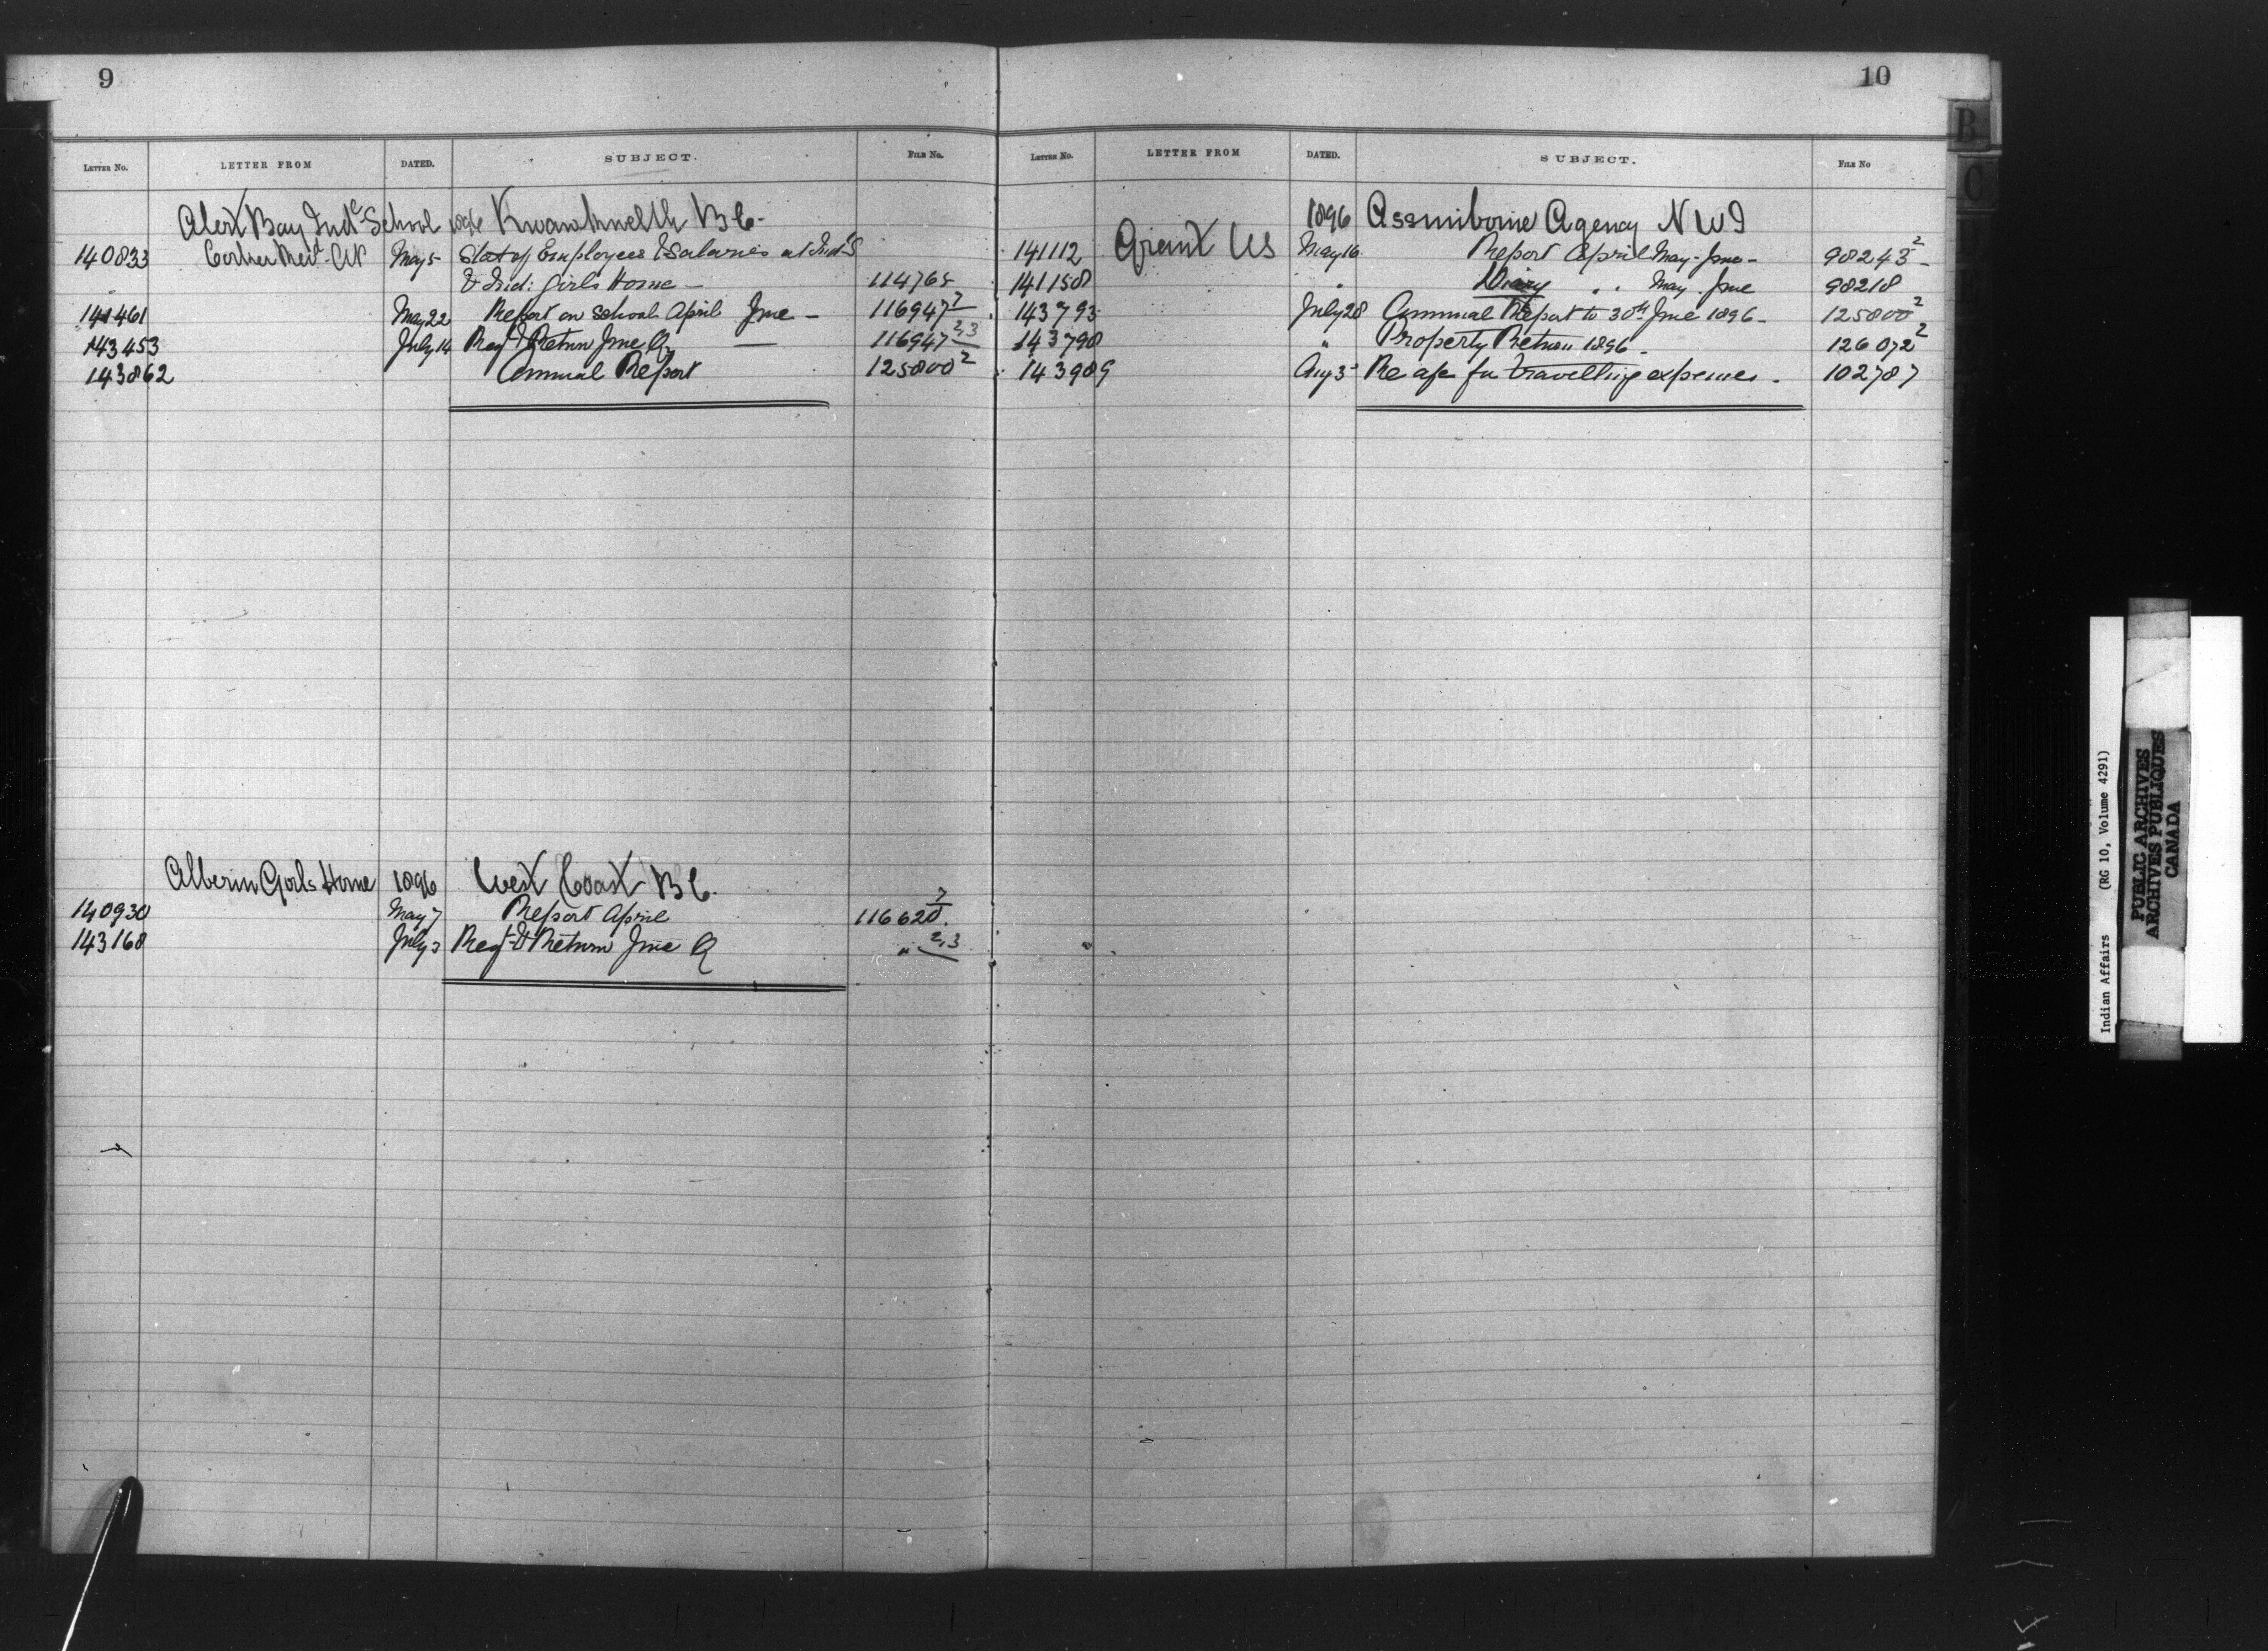 9
LETTER NO. LETTER FROM DATED. SUBJECT. FILE No.
Alert Bay Inde School 1896 Kwawkwelth B C-
140833 Corker Revd AP May 5 Stat of Employees & Salaries at Ind S
& Ind: Girls Home - 114765
141461 May 22 Report on School April June - 116947 2
143453 July 14 Reqt & Return June Q 116947 2,3
143862 Annual Report 125800 2
Alberni Girls Home 1896 West Coast B C.
140930 May 7 Report April 116620 7
143168 July 3 Reqt & Return June Q " 2,3
10
LETTER No. LETTER FROM DATED. SUBJECT. FILE No
1896 Assiniboine Agency N W T
141112 Grant WS May 16 Report April May - June - 98243 2
141158 " Diary " " May . June 98218
143793 July 28 Annual Report to 30th June 1896 - 125800 2
143798 " Property Return 1896 - 126072 2
143989 Aug 3 Re a/c for travelling expenses - 102787
B
C
Indian Affairs (RG 10, Volume 4291)
PUBLIC ARCHIVES
ARCHIVES PUBLIQUES
CANADA